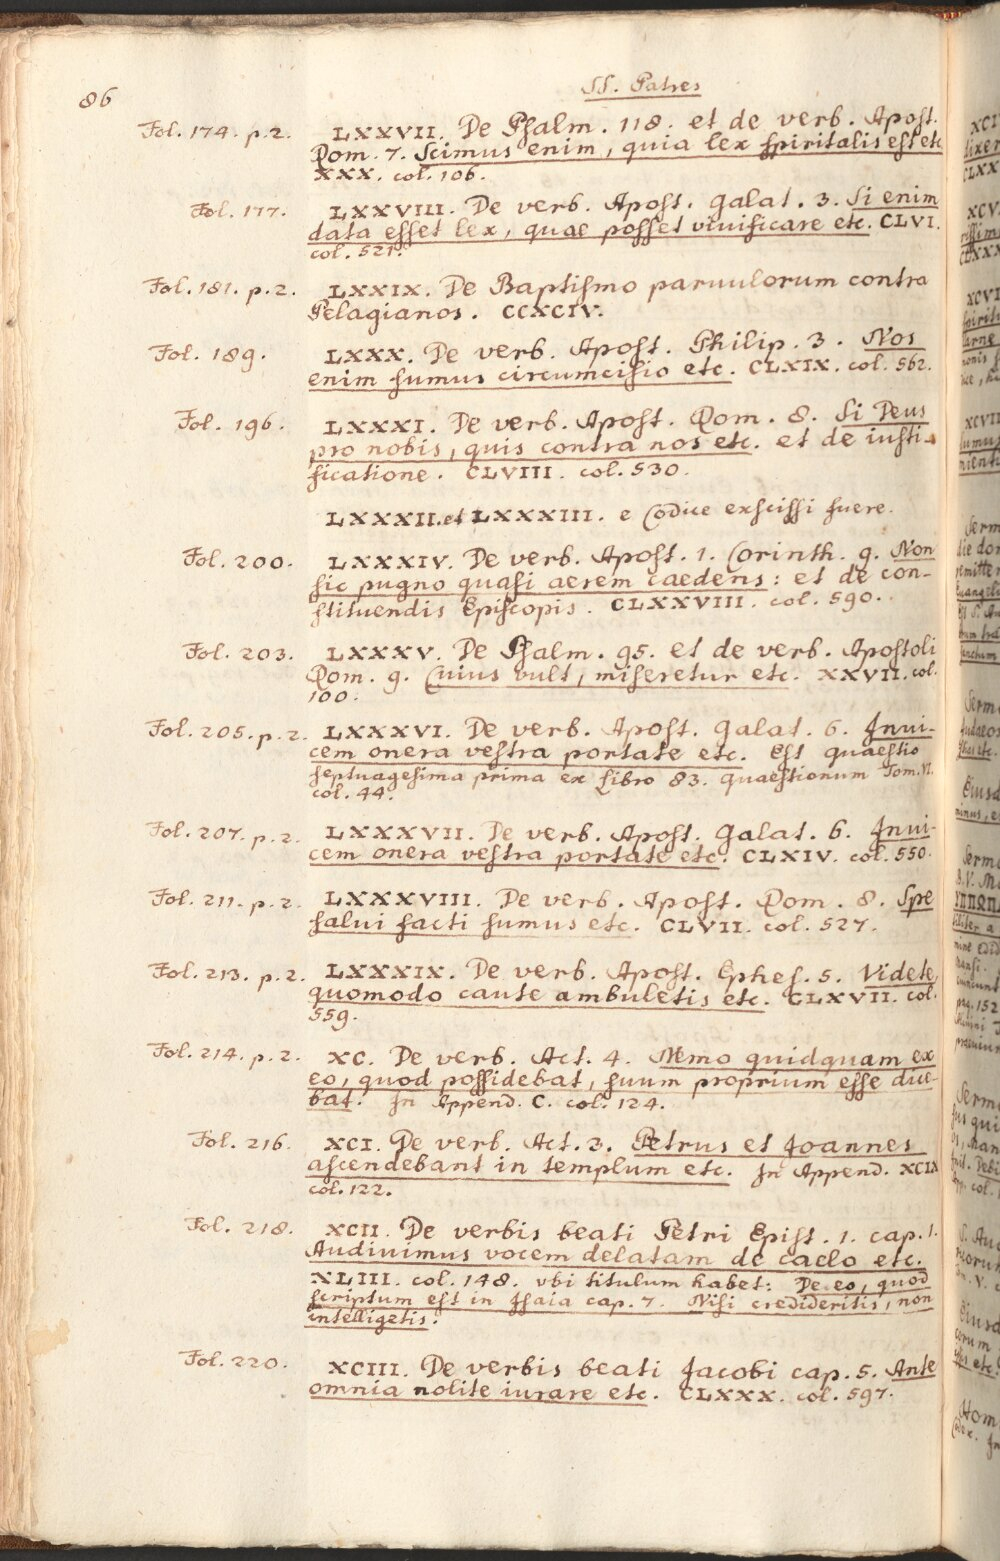 86
SS. Patres
Fol. 174. p. 2. LXXVII. De Psalm. 118. et de verb. Apost.
Rom. 7. Scimus enim, quia lex spiritalis est etc
XXX. col. 106.
Fol. 177. LXXVIII. De verb. Apost. Galat. 3. Si enim
data esset lex, quae posset viuificare etc. CLVI.
col. 521.
Fol. 181. p. 2. LXXIX. De Baptismo paruulorum contra
Pelagianos. CCXCIV.
Fol. 189. LXXX. De verb. Apost. Philip. 3. Nos
enim sumus circumcisio etc. CLXIX. col. 562.
Fol. 196. LXXXI. De verb. Apost. Rom. 8. Si Deus
pro nobis, quis contra nos etc. et de iusti-
ficatione. CLVIII. col. 530.
LXXXII. et LXXXIII. e Codice exscissi fuere.
Fol. 200. LXXXIV. De verb. Apost. 1. Corinth. 9. Non
sic pugno quasi aerem caedens: et de con-
stituendis Episcopis. CLXXVIII. col. 590.
Fol. 203. LXXXV. De Psalm. 95. et de verb. Apostoli
Rom. 9. Cuius vult, miseretur etc. XXVII. col.
100.
Fol. 205. p. 2. LXXXVI. De verb. Apost. Galat. 6. Inui-
cem onera vestra portate etc. Est quaestio
septuagesima prima ex Libro 83. quaestionum Tom. VI.
col. 44.
Fol. 207. p. 2. LXXXVII. De verb. Apost. Galat. 6. Inui-
cem onera vestra portate etc. CLXIV. col. 550.
Fol. 211. p. 2. LXXXVIII. De verb. Apost. Rom. 8. Spe
salui facti sumus etc. CLVII. col. 527.
Fol. 213. p. 2. LXXXIX. De verb. Apost. Ephes. 5. Videte,
quomodo caute ambuletis etc. CLXVII. col.
559.
Fol. 214. p. 2. XC. De verb. Act. 4. Nemo quidquam ex
eo, quod possidebat, suum proprium esse dice-
bat. In Append. C. col. 124.
Fol. 216. XCI. De verb. Act. 3. Petrus et Joannes
ascendebant in templum etc. In Append. XCIX
col. 122.
Fol. 218. XCII. De verbis beati Petri Epist. 1. cap. 1.
Audiuimus vocem delatam de caelo etc.
XLIII. col. 148. vbi titulum habet: De eo, quod
scriptum est in Isaia cap. 7. Nisi credideritis, non
intelligetis.
Fol. 220. XCIII. De verbis beati Jacobi cap. 5. Ante
omnia nolite iurare etc. CLXXX. col. 597.